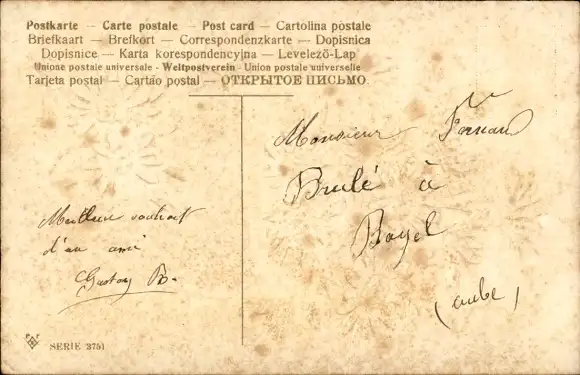 Postkarte — Carte postale — Post card — Cartolina postale
Briefkaart — Brefkort — Correspondenzkarte — Dopisnica
Dopisnice — Karta korespondencyjna — Levelező-Lap
Unione postale universale - Weltpostverein - Union postale universelle
Tarjeta postal — Cartão postal — ОТКРЫТОЕ ПИСЬМО.
Monsieur Fernand
Brulé à
Bayel
(aube)
Meilleur souhait
d'un ami
Gustav B.
SERIE 3751